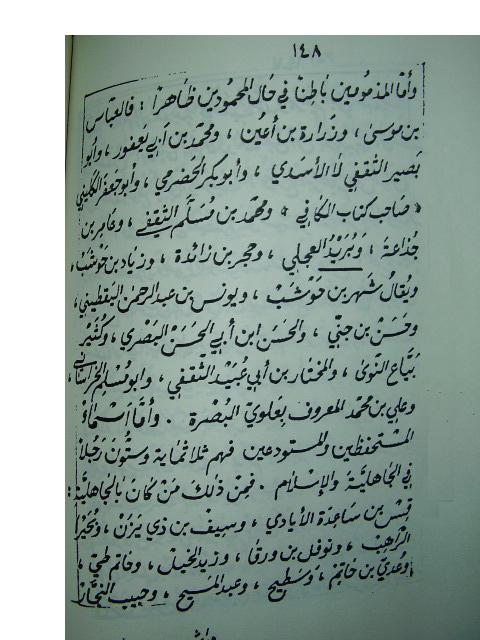 ١٤٨
وأمّا المذمومين باطنًا في حال المحمودين ظاهرًا : فالعبّاس
بن موسى ، وزرارة بن أعين ، ومحمّد بن أبي يعفور ، وأبو
بصير الثقفي لا الأسدي ، وأبو بكر الحضرمي ، وأبو جعفر الكليني
« صاحب كتاب الكافي » ومحمّد بن مسلم الثقفي ، وعامر بن
جذاعة ، وبُرَيْدُ العجلي ، وحجر بن زائدة ، وزياد بن حوشب ،
ويُقالُ شهر بن حَوْشَبْ ، ويونس بن عبد الرحمٰن اليقطيني ،
وحسن بن حبّي ، والحسن ابن أبي الحسن البصري ، وكثير
بيّاع النوى ، والمختار بن أبي عُبَيْد الثّقفي ، وابو مسلم الخراساني ،
وعلي بن محمّد المعروف بعلويّ البَصْرة . وأمّا أسماءُ
المستحفظين والمستودعين فهم ثلاثماية وستّون رَجُلًا
في الجاهليّة والإسلام . فمِنْ ذلك مَنْ كانَ بالجاهليّة :
قِسّ بن ساعِدَة الأيادي ، وسيف بن ذي يَزَنْ ، وبُحَيْرا
الرّاهِبْ ، ونوفل بن ورقا ، وزيد الخيل ، وحاتم طيّ ،
وعُديّ بن حاتِمْ ، وسَطيح ، وعبد المسيح ، وحبيب النجّار